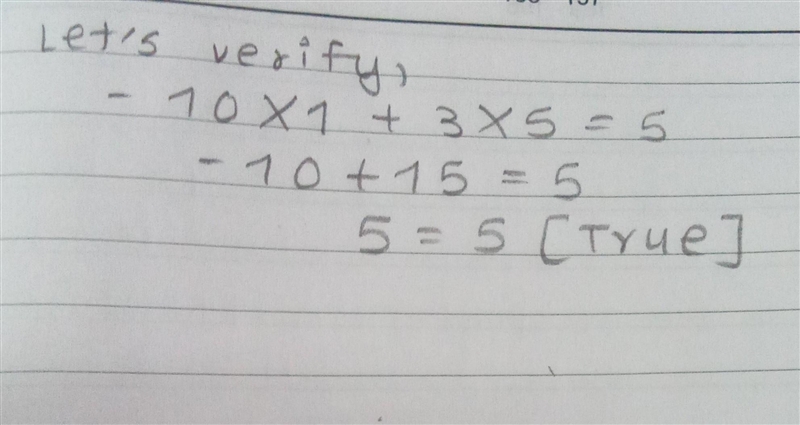 Let's verify,
- 10 X 1 + 3 X 5 = 5
- 10 + 15 = 5
5 = 5 [True]